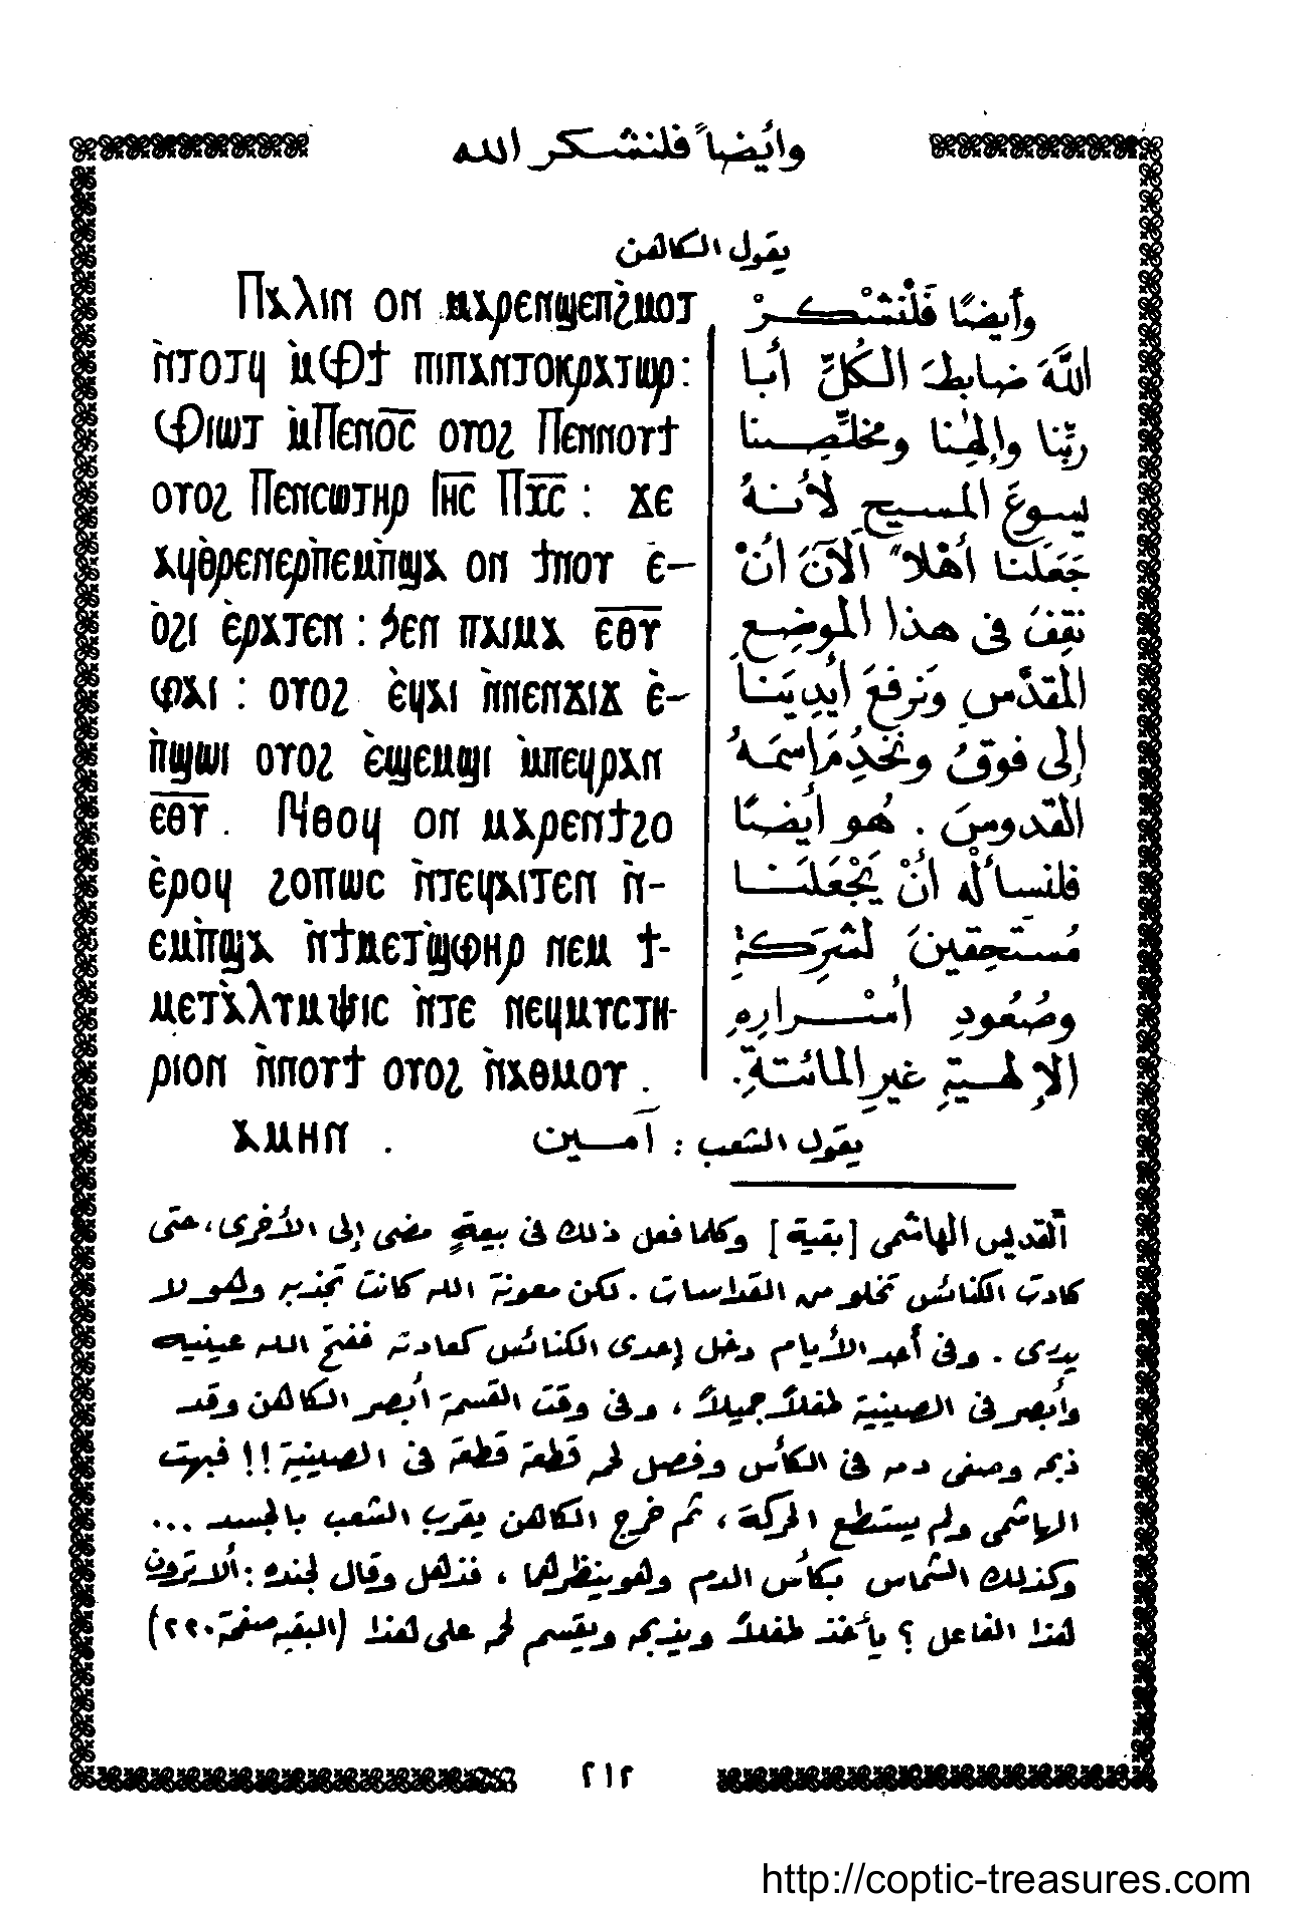 وأيضاً فلنشكر الله
يقول الكاهن
Ⲡⲁⲗⲓⲛ ⲟⲛ ⲙⲁⲣⲉⲛϣⲉⲡϩ̀ⲙⲟⲧ
ⲛ̀ⲧⲟⲧϥ ⲙ̀Ⲫϯ ⲡⲓⲡⲁⲛⲧⲟⲕⲣⲁⲧⲱⲣ:
Ⲫⲓⲱⲧ ⲙ̀Ⲡⲉⲛⲟ̅ⲥ̅ ⲟⲩⲟϩ Ⲡⲉⲛⲛⲟⲩϯ
ⲟⲩⲟϩ Ⲡⲉⲛⲥⲱⲧⲏⲣ Ⲓⲏ̅ⲥ̅ Ⲡⲭ̅ⲥ̅ : ϫⲉ
ⲁϥⲑ̀ⲣⲉⲛⲉⲣⲡ̀ⲉⲙⲡ̀ϣⲁ ⲟⲛ ϯⲛⲟⲩ ⲉ̀–
ⲟ̀ϩⲓ ⲉ̀ⲣⲁⲧⲉⲛ : ϧⲉⲛ ⲡⲁⲓⲙⲁ ⲉ̅ⲑ̅ⲩ̅
ⲫⲁⲓ : ⲟⲩⲟϩ ⲉ̀ϥⲁⲓ ⲛ̀ⲛⲉⲛϫⲓϫ ⲉ̀–
ⲡ̀ϣⲱⲓ ⲟⲩⲟϩ ⲉ̀ϣⲉⲙϣⲓ ⲙ̀ⲡⲉϥⲣⲁⲛ
ⲉ̅ⲑ̅ⲩ̅ . Ⲛ̀ⲑⲟϥ ⲟⲛ ⲙⲁⲣⲉⲛϯϩⲟ
ⲉ̀ⲣⲟϥ ϩⲟⲡⲱⲥ ⲛ̀ⲧⲉϥⲁⲓⲧⲉⲛ ⲛ̀-
ⲉⲙⲡ̀ϣⲁ ⲛ̀ϯⲙⲉⲧϣ̀ⲫⲏⲣ ⲛⲉⲙ ϯ-
ⲙⲉⲧⲁ̀ⲗⲩⲙⲯⲓⲥ ⲛ̀ⲧⲉ ⲛⲉϥⲙⲩⲥⲧⲏ-
ⲣⲓⲟⲛ ⲛ̀ⲛⲟⲩϯ ⲟⲩⲟϩ ⲛ̀ⲁⲑⲙⲟⲩ .
وأيضًا فَلْنَشْكرْ
اللَّهَ ضابطَ الكُلِّ أبا
ربِّنا وإلهِنا ومخلِّصِنا
يسوعَ المسيحِ لأنهُ
جَعَلَنا أهْلاً الآنَ أنْ
نقِفَ فى هذا الموضِعِ
المقدَّسِ وَنرفعَ أيدِيَنا
إلى فوقُ ونَخْدُمَ اسمَهُ
القدوسَ . هُو أيضًا
فلنسألْه أنْ يَجْعَلَنا
مُستَحِقينَ لشرِكةِ
وصُعُودِ أسْرارِهِ
الإلهيةِ غيرِ المائتةِ.
يقول الشعب : آمين . ⲁⲙⲏⲛ
القديس الهاشمى [بقية] وكلما فعل ذلك فى بيعةٍ مضى إلى الأخرى، حتى
كادت الكنائس تخلو من القداسات . لكن معونة الله كانت تجذبه وهو لا
يدرى . وفى أحد الأيام دخل إحدى الكنائس كعادته ففتح الله عينيه
وأبصر فى الصينية طفلاً جميلاً ، وفى وقت القسمة أبصر الكاهن وقد
ذبحه وصفى دمه فى الكأس وفصل لحمه قطعة قطعة فى الصينية !! فبهت
الهاشمى ولم يستطع الحركة ، ثم خرج الكاهن يقرب الشعب بالجسد ...
وكذلك الشماس بكأس الدم وهو ينظرهما ، فذهل وقال لجنده : ألا ترون
هذا الفاعل ؟ يأخذ طفلاً ويذبحه ويقسم لحمه على هذا (البقيه صفحة ٢٢٠)
٢١٢
http://coptic-treasures.com